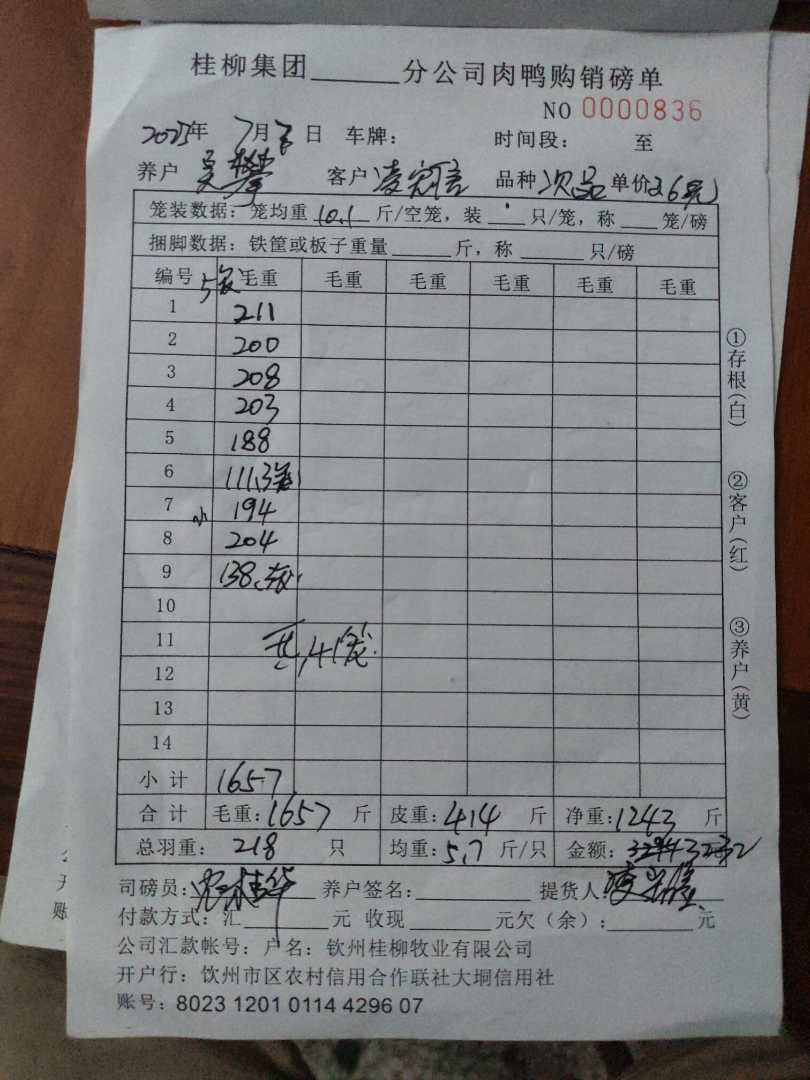 桂柳集团______分公司肉鸭购销磅单
NO 0000836
2025年 7月 日 车牌： 时间段： 至
养户 吴攀 客户 凌 品种 次品 单价 2.6元
笼装数据：笼均重 10.1 斤/空笼，装 ___ 只/笼，称 ___ 笼/磅
捆脚数据：铁筐或板子重量 _____ 斤，称 _____ 只/磅
编号 5笼 毛重 毛重 毛重 毛重 毛重 毛重
1 211
2 200
3 208
4 203
5 188
6 111.3笼
7 194
8 204
9 138.
10
11 共,41笼
12
13
14
小计 1657
合计 毛重：1657 斤 皮重：414 斤 净重：1243 斤
总羽重： 218 只 均重：5.7 斤/只 金额： 3232
司磅员： 养户签名： 提货人：凌
付款方式：汇______元 收现______元欠（余）：______元
公司汇款帐号：户名：钦州桂柳牧业有限公司
开户行：饮州市区农村信用合作联社大垌信用社
账号：8023 1201 0114 4296 07
①存根(白)
②客户(红)
③养户(黄)